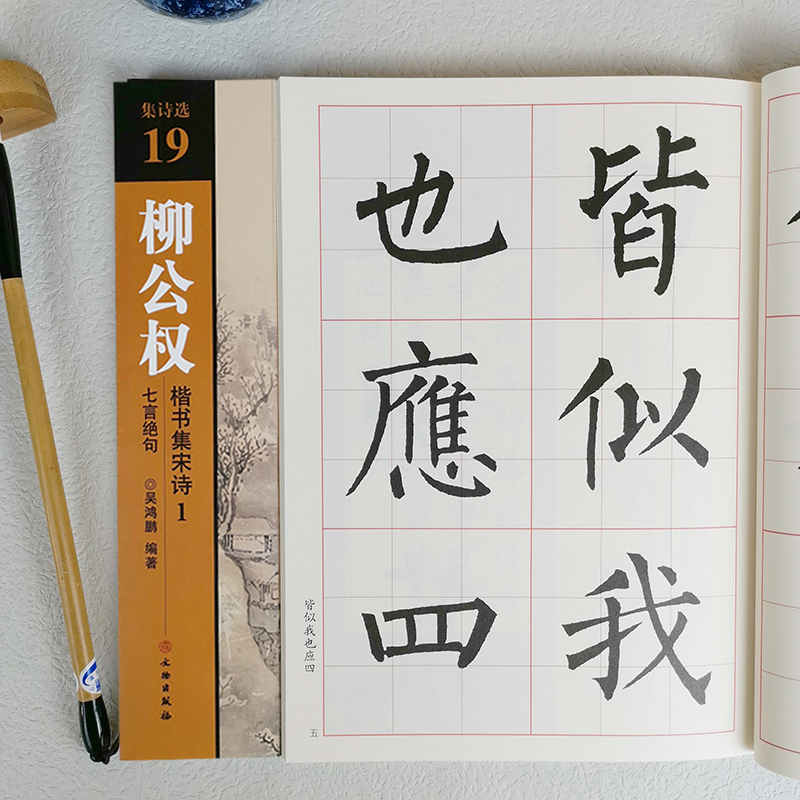 集诗选
19
柳公权
楷书集宋诗1
七言绝句
◎吴鸿鹏 编著
文物出版社
皆似我
也應四
皆似我也应四
五